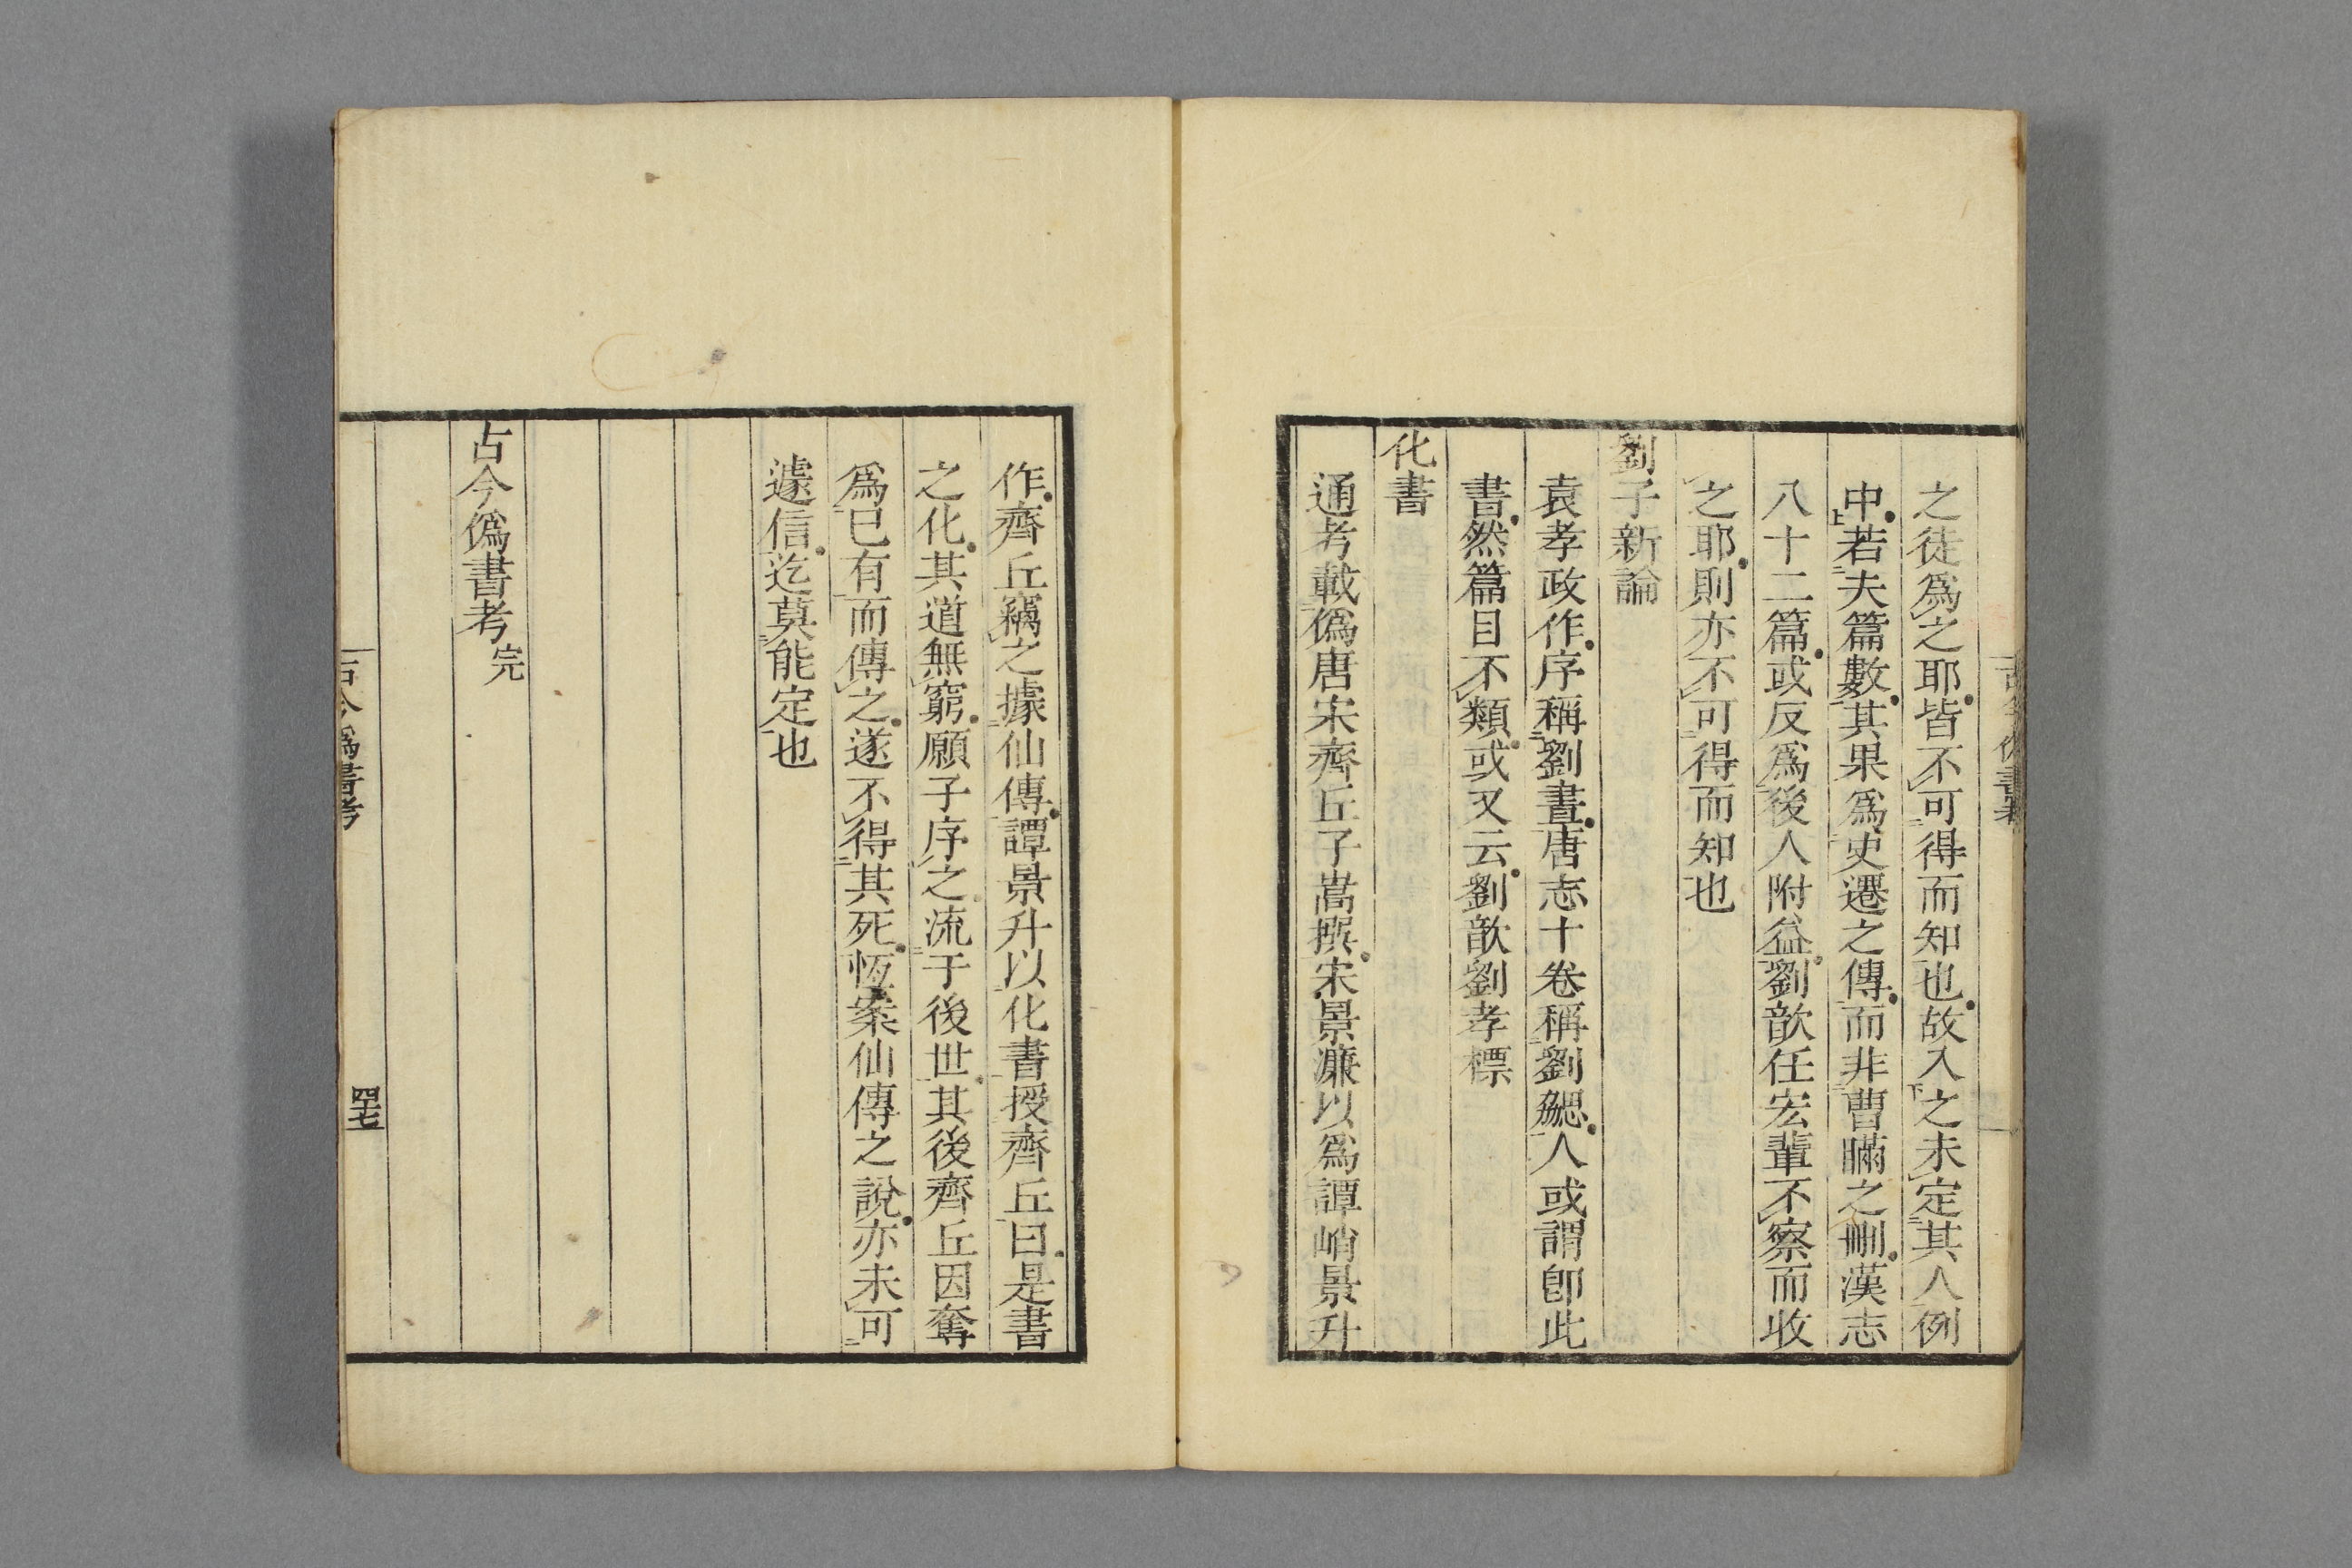 之徒爲之耶皆不可得而知也故入之未定其人例
中若夫篇數其果爲史遷之傳而非曹瞞之刪漢志
八十二篇或反爲後人附益劉歆任宏輩不察而收
之耶則亦不可得而知也
劉子新論
袁孝政作序稱劉晝唐志十卷稱劉勰人或謂卽此
書然篇目不類或又云劉歆劉孝標
化書
通考載僞唐宋齊丘子嵩撰宋景濂以爲譚峭景升
作齊丘竊之據仙傳譚景升以化書授齊丘曰是書
之化其道無窮願子序之流于後世其後齊丘因奪
爲已有而傳之遂不得其死恆案仙傳之說亦未可
遽信迄莫能定也
古今僞書考完
古今僞書考
四十七